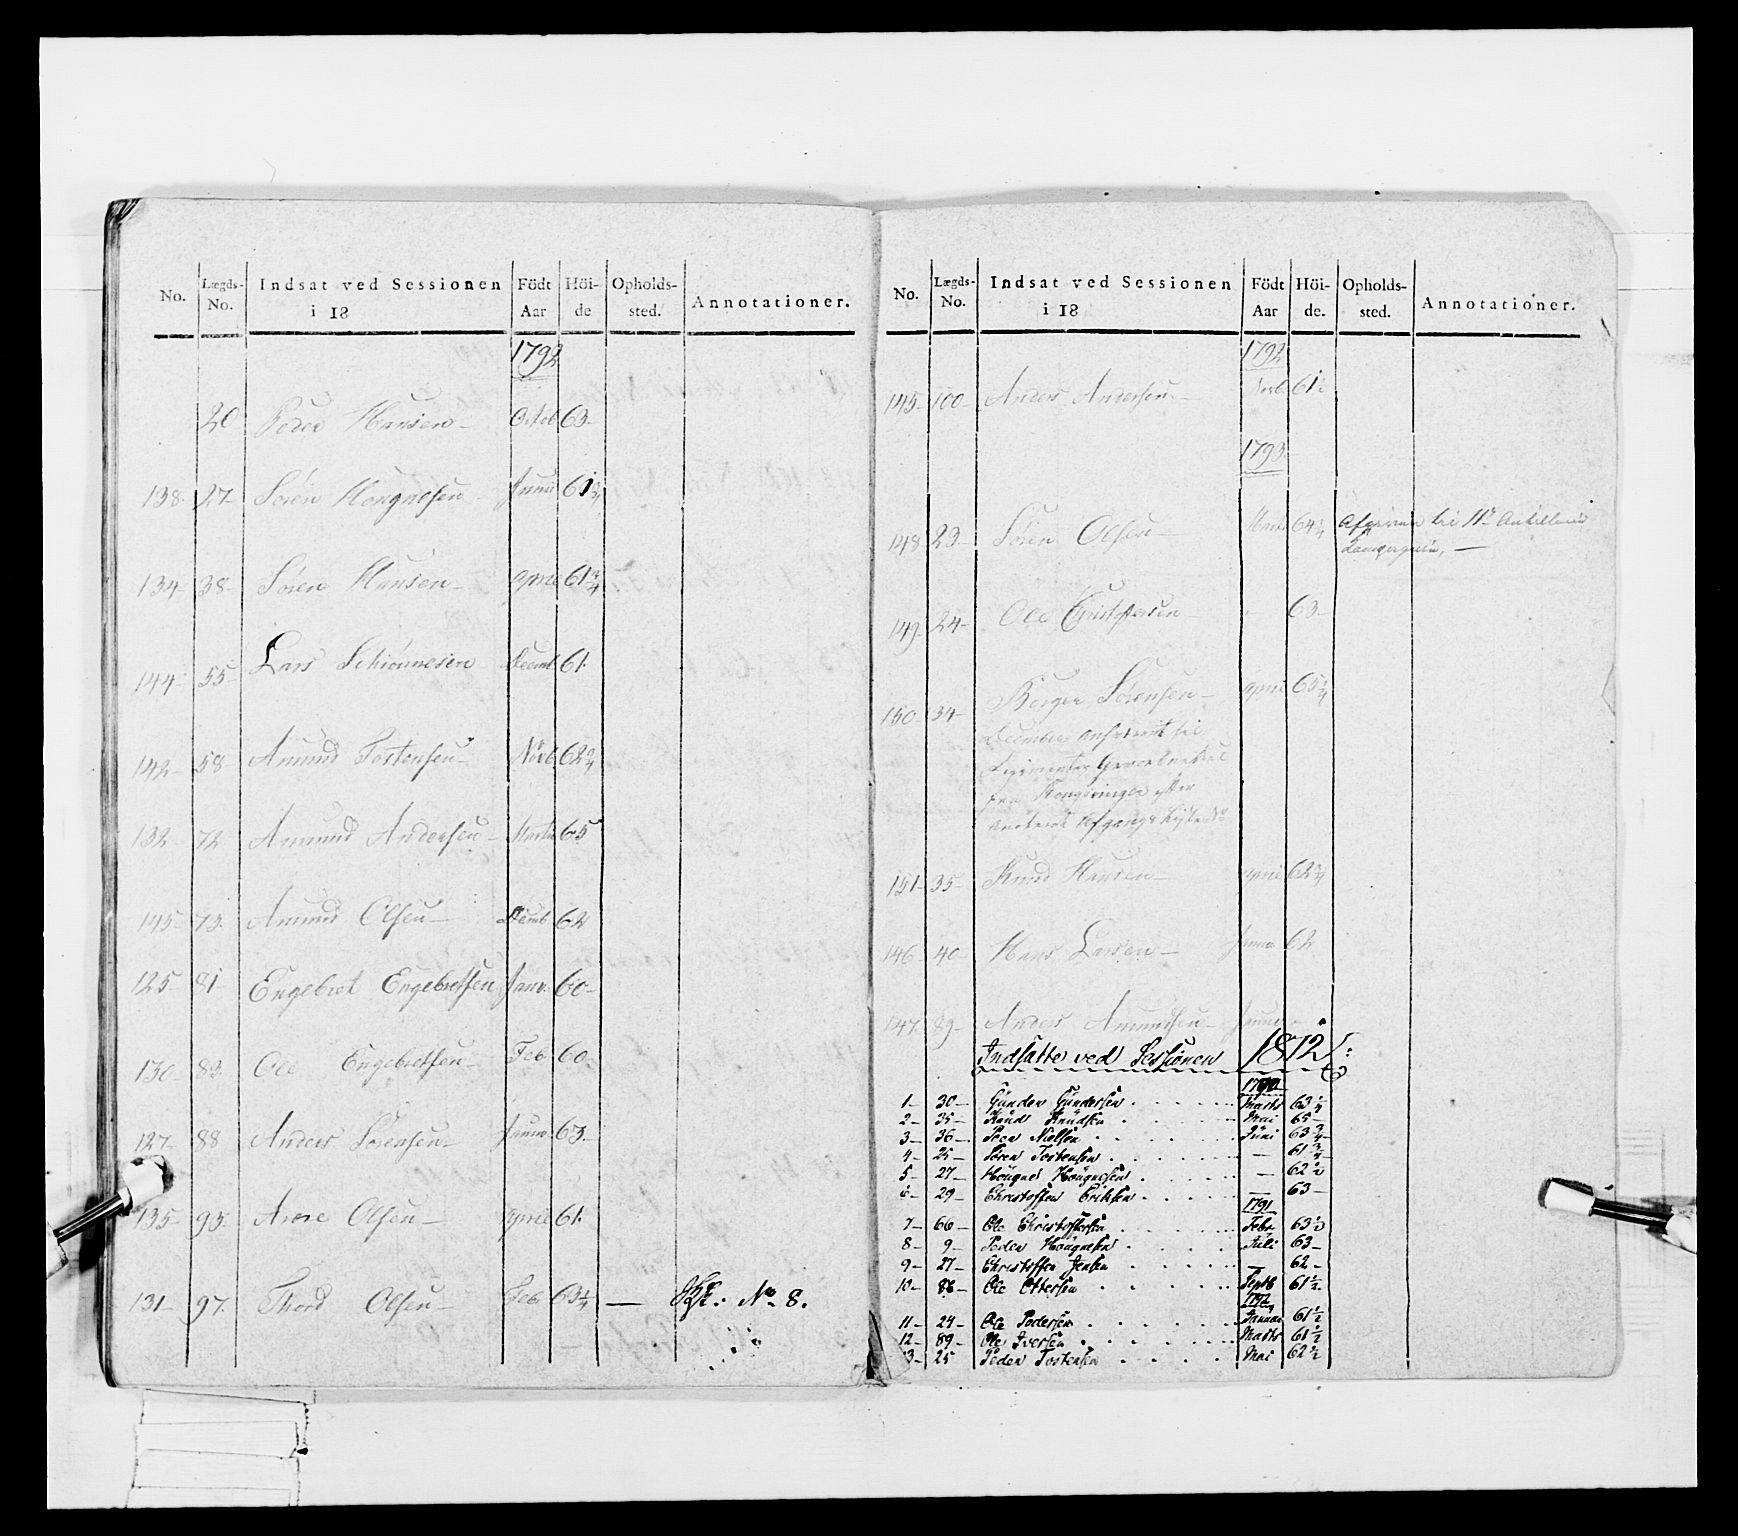 No. Lægds-No. Indsat ved Sessionen i 18 Födt Aar Höi-de Opholds-sted. Annotationer.
1792
20 Peder Hansen Octob 63
138 27 Sören Haagnesen Junii 61
134 38 Sören Hansen April 61 3/4
144 55 Lars Decemb 61
142 58 Amund Tostensen Novb 62 3/4
132 72 Amund Andersen Martii 65
145 73 Amund Olsen Decemb 62
125 81 Engebret Engebretsen Janv. 60
130 83 Ole Engebretsen Feb 60
127 88 Anders Sörensen Januar 63
135 95 Arne Olsen April 61
131 97 Thord Olsen Feb. 63 1/4 — No 8.
No. Lægds-No. Indsat ved Sessionen i 18 Födt Aar Höi-de. Opholds-sted. Annotationer.
1792
145 100 Anders Andersen 61 1/2
1793
148 23 Sören Olsen Martii 64 1/4 Afgiven til
149 24 Ole Christophersen - 63
150 34 Sörensen April 65 1/4
December til
fra Kongsvinger efter
151 35 Knud Hansen April 62 3/4
146 40 Hans Larsen Januar 62
147 89 Anders Amundsen Januar
Indsatte ved Sessionen 1812
1790
1 30 Gunder Gundersen Marts 63 1/4
2 35 Knud Knudsen Mai 65
3 36 Peer Nielsen Juni 63 3/4
4 25 Sören Tostensen — 61 3/4
5 27 Hougnes Hougnesen — 62 1/2
6 29 Christoffer Eriksen — 63
1791
7 66 Ole Christoffersen Febr 63 1/2
8 9 Peder Hougnesen Juli 63
9 27 Christoffer Jensen — 62
10 86 Ole Ottersen Septb 61 1/2
1792
11 24 Ole Pedersen Januar 61 1/2
12 89 Ole Iversen Marts 61 1/2
13 25 Peder Tostensen Mai 62 1/2